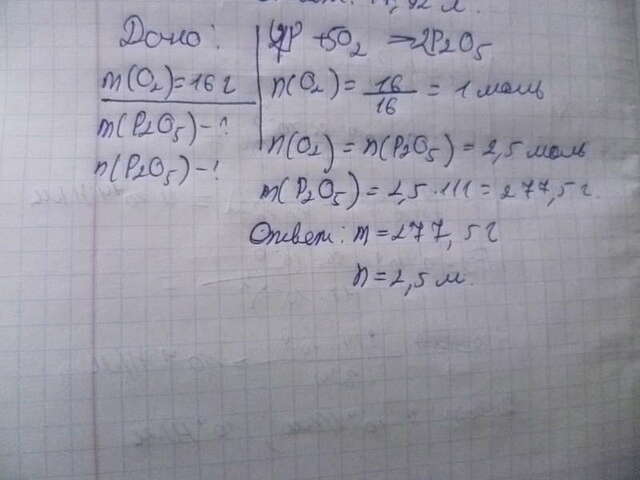 Дано:
m(O2)=16г
m(P2O5)-?
n(P2O5)-?
4P+5O2→2P2O5
n(O2)=16/16=1моль
n(O2)=n(P2O5)=2,5моль
m(P2O5)=2,5·111=277,5г.
Ответ: m=277,5г
n=2,5м.